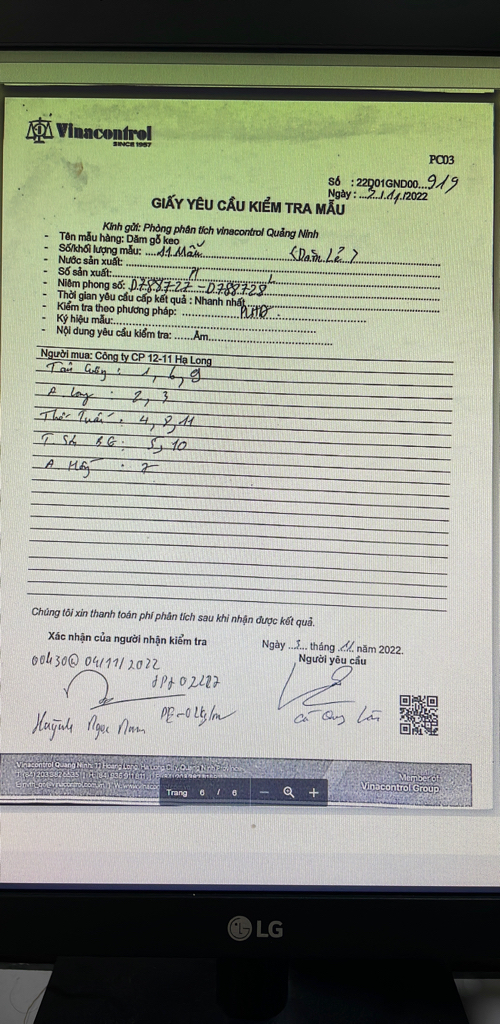 Vinacontrol
SINCE 1957
PC03
Số : 22D01GND00...919
Ngày : ...3../.11./2022
GIẤY YÊU CẦU KIỂM TRA MẪU
Kính gửi: Phòng phân tích vinacontrol Quảng Ninh
- Tên mẫu hàng: Dăm gỗ keo
- Số/khối lượng mẫu: ....11 Mẫu (Dăm Lẻ)
- Nước sản xuất:
- Số sản xuất:
- Niêm phong số: 0788727 - 0788728
- Thời gian yêu cầu cấp kết quả : Nhanh nhất
- Kiểm tra theo phương pháp:
- Ký hiệu mẫu:
- Nội dung yêu cầu kiểm tra: ....Ẩm
Người mua: Công ty CP 12-11 Hạ Long
: 1, 6, 9
A Long : 2, 3
: 4, 8, 11
BG : 5, 10
A : 7
Chúng tôi xin thanh toán phí phân tích sau khi nhận được kết quả.
Xác nhận của người nhận kiểm tra
Ngày ...3... tháng .11. năm 2022.
Người yêu cầu
00h30@ 04/11/2022
Huỳnh Ngọc Nam
Vinacontrol Quang Ninh: 11 Hoang Long, Ha Long City, Quang Ninh Province
Member of
Vinacontrol Group
Trang 6 / 6 − +
LG